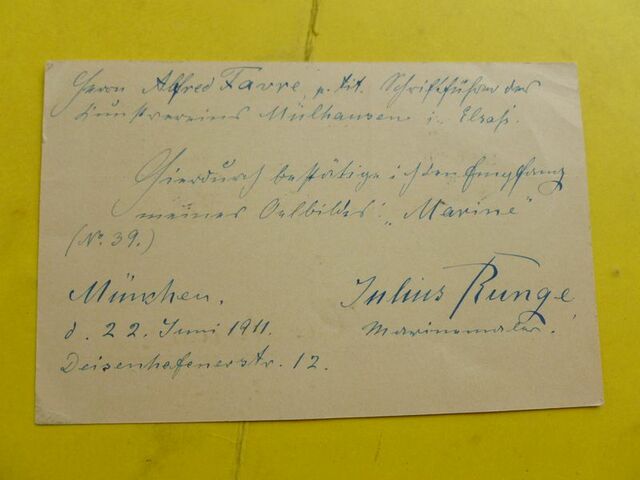 Herrn Alfred Favre, p. tit. Schriftführer des
Kunstvereins Mülhausen i. Elsaß.
Hierdurch bestätige ich den Empfang
meines Oelbildes: „Marine"
(No. 39.)
München.
d. 22. Juni 1911.
Deisenhofenerstr. 12.
Julius Runge
Marinemaler.